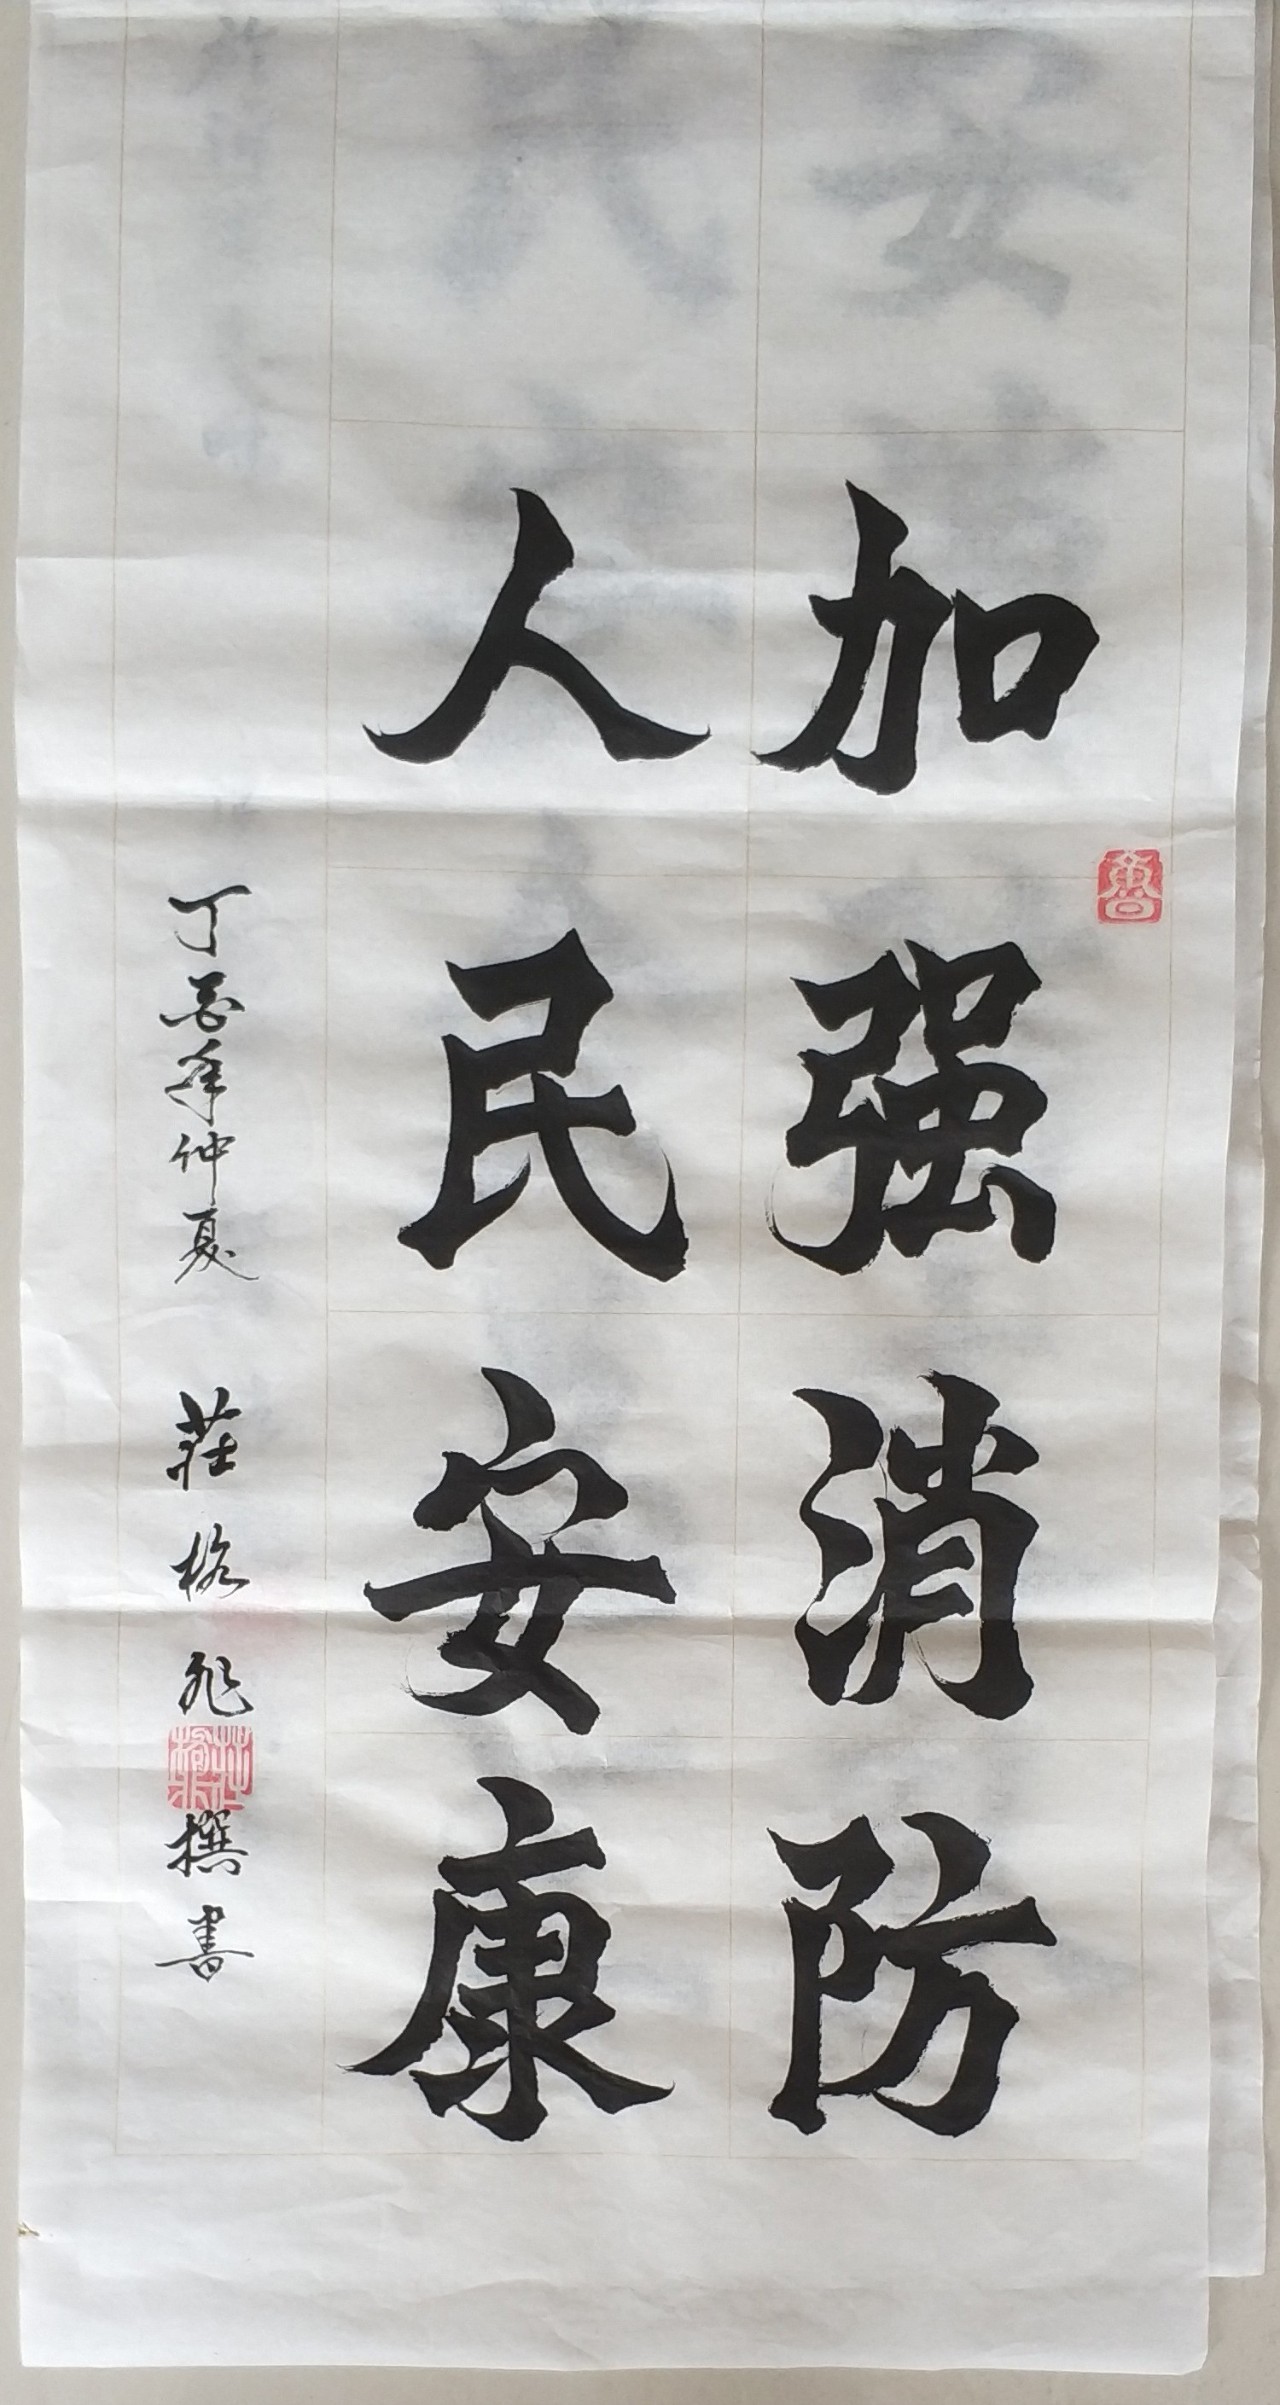 加强消防
人民安康
丁酉年仲夏 莊 格 非 撰書